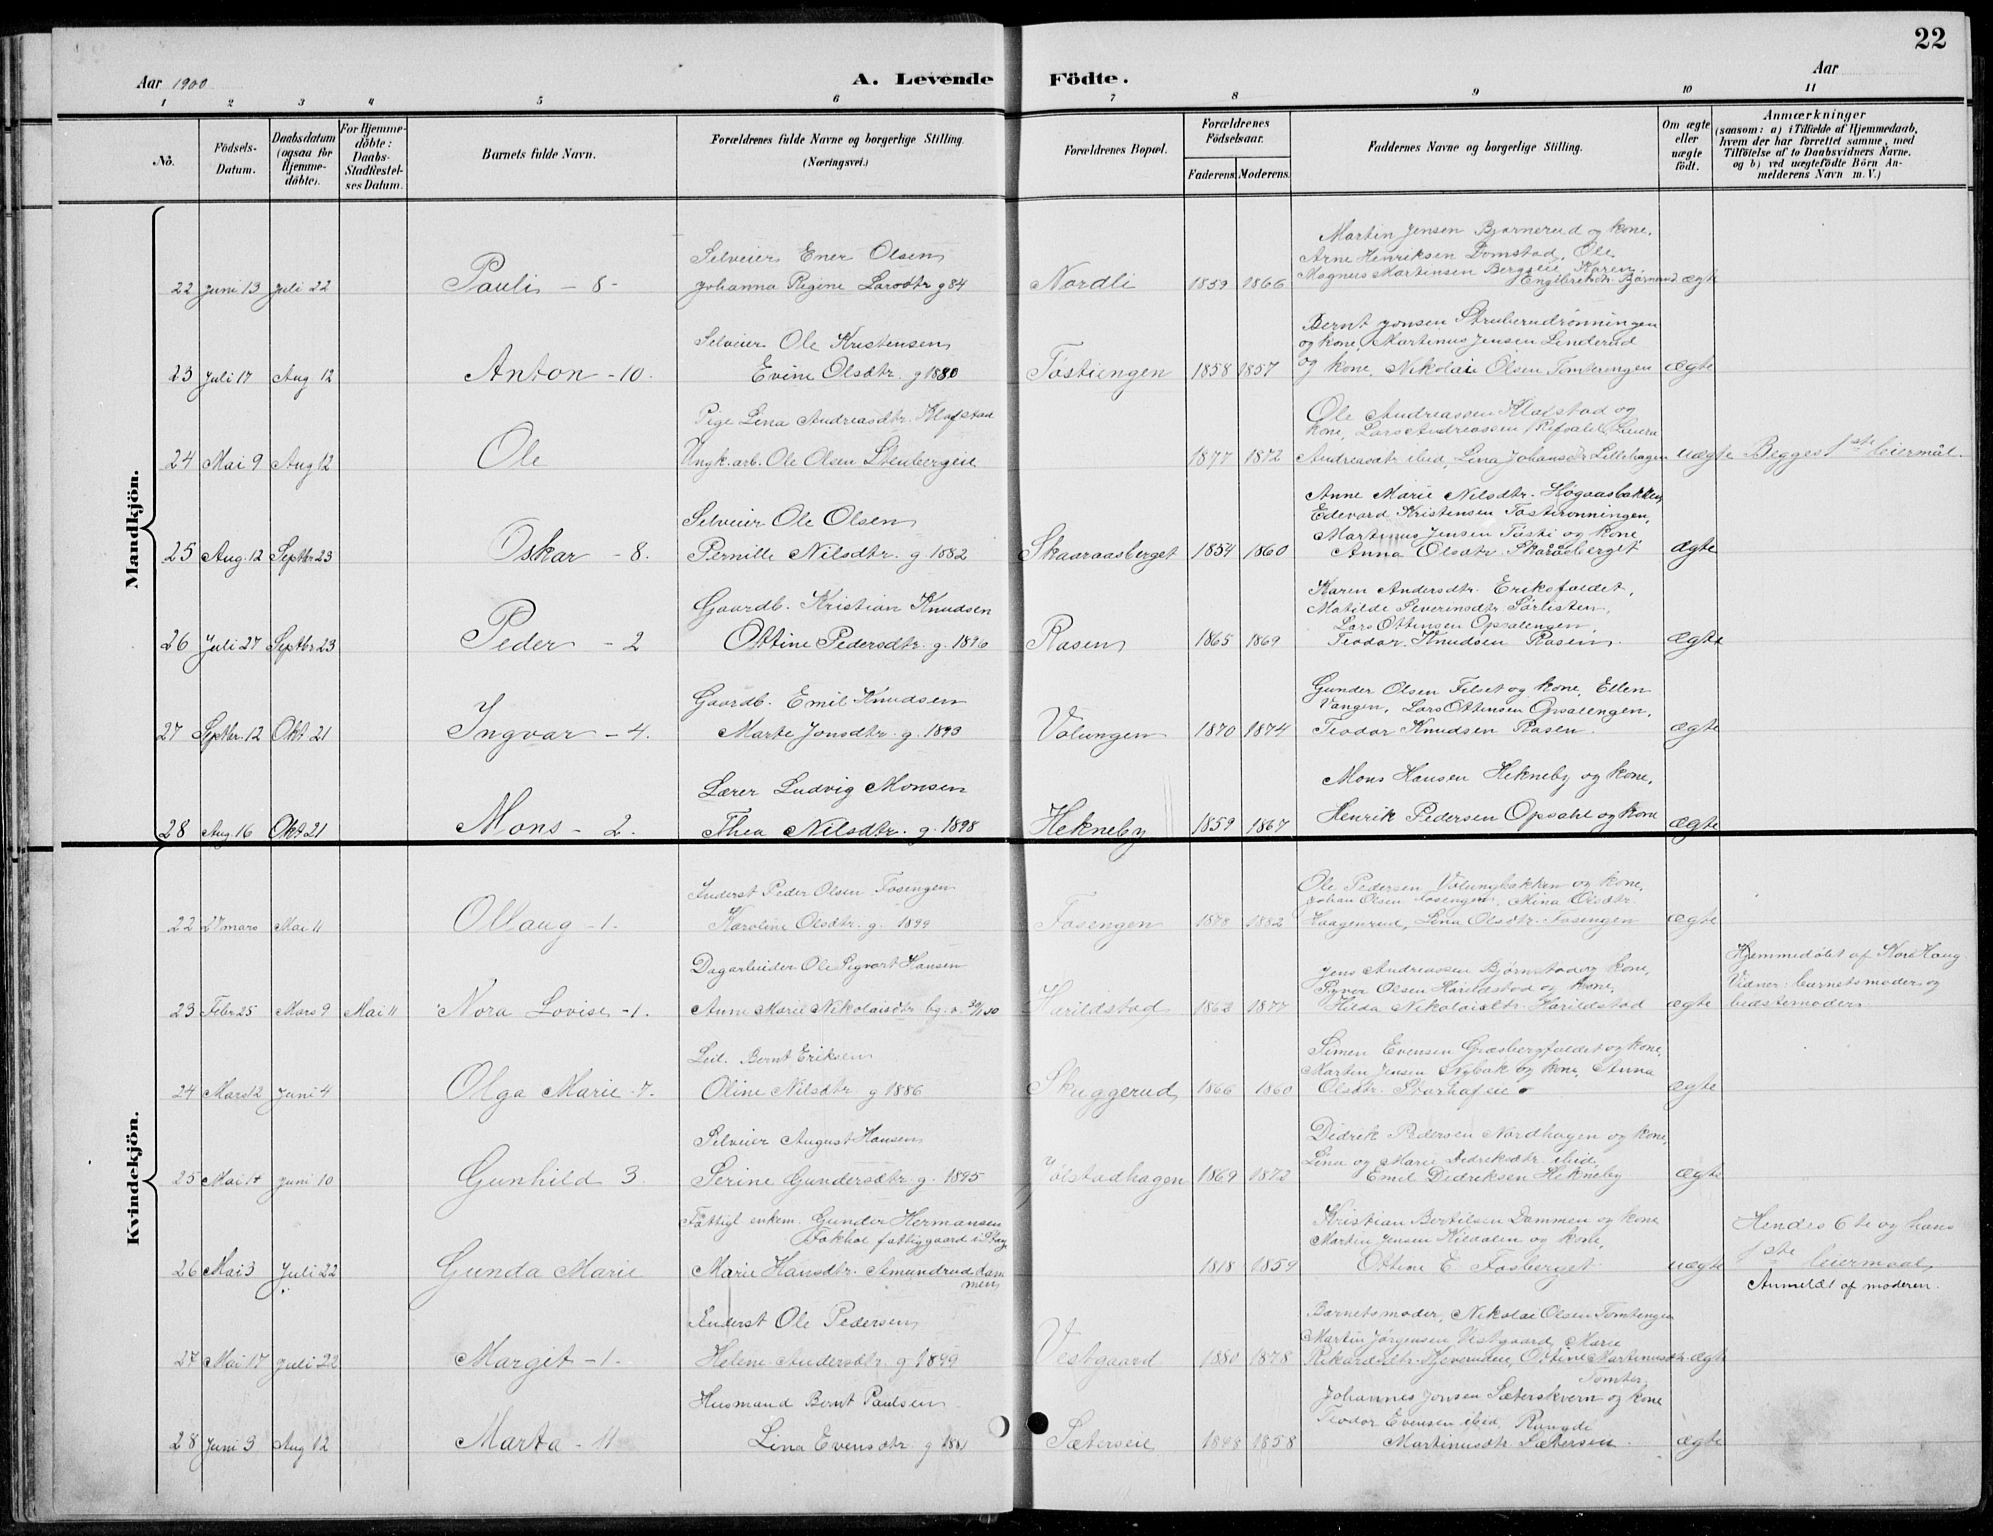 22
Aar 1900
A. Levende Födte.
Aar
1 2 3 4 5 6 7 8 9 10 11
Nô.
Födsels-Datum.
Daabsdatum (ogsaa for Hjemme-döbte).
For Hjemme-döbte: Daabs-Stadfæstel-ses Datum.
Barnets fulde Navn.
Forældrenes fulde Navne og borgerlige Stilling. (Næringsvei.)
Forældrenes Bopæl.
Forældrenes Födselsaar.
Faderens. Moderens.
Faddernes Navne og borgerlige Stilling.
Om ægte eller uægte födt.
Anmærkninger
(saasom: a) i Tilfælde af Hjemmedaab,
hvem der har forrettet samme, med
Tilföielse af to Daabsvidners Navne.
og b) ved uægtefödte Börn An-
melderens Navn m. V.)
Mandkjön.
Selveier Ener Olsen
Martin Jensen Bjørnerud og kone,
Arne Henriksen Domstad, Ole
Magnus Martinsen Bergseie, Karen
22 Juni 13 Juli 22 Pauli - 8 - Johanna Regine Larsdtr g 84 Nordli 1859 1866 Engebretsdtr. Bjørnerud ægte
Selveier Ole Kristensen
Bernt Jonsen Struberudrønningen
og kone, Martinus Jensen Linderud
23 Juli 17 Aug 12 Anton - 10. Evine Olsdtr. g 1880 Tostiengen 1858 1857 og kone, Nikolai Olsen Tomterengen ægte
Pige Lina Andreasdtr. Klafstad
Ole Andreassen Klafstad og
kone, Lars Andreassen Laura
24 Mai 9 Aug 12 Ole Ungk. arb. Ole Olsen Stenbergeie 1877 1872 Andreasdtr ibid, Lina Johansdtr Lillehagen uægte Begges 1ste leiermål.
Selveier Ole Olsen
Anne Marie Nilsdtr. Høgaasbakken
Edevard Kristensen Tostirønningen,
Martinus Jensen Tosti og kone
25 Aug. 12 Septbr 23 Oskar - 8. Pernille Nilsdtr. g 1882 Skaaraasberget 1854 1860 Anna Olsdtr. Skåråsberget ægte
Gaardb. Kristian Knudsen
Karen Andersdtr. Eriksfaldet,
Matilde Severinsdtr Sørlisten,
Lars Ottensen Opsalengen,
26 Juli 27 Septbr 23 Peder - 2 Ottine Pedersdtr. g. 1896 Rasen 1865 1869 Teodor Knudsen Rasen. ægte
Gaardb. Emil Knudsen
Gunder Olsen Filset og kone, Ellen
Vangen, Lars Ottensen Opsalengen,
27 Septbr. 12 Okt 21 Ingvar - 4. Marte Jonsdtr. g. 1893 Volungen 1870 1874 Teodor Knudsen Rasen. ægte
Lærer Ludvig Monsen
Mons Hansen Hekneby og kone,
28 Aug. 16 Okt 21 Mons - 2. Thea Nilsdtr. g. 1898 Hekneby 1859 1867 Henrik Pedersen Opsahl og kone ægte
Kvindekjön.
Inderst Peder Olsen Fosengen
Ole Pedersen Volungbakken og kone,
Johan Olsen Fosengen, Mina Olsdtr.
22 27 mars Mai 11 Ollaug - 1. Karoline Olsdtr. g. 1899 Fosengen 1878 1882 Haagenrud, Lina Olsdtr. Fosengen ægte
Dagarbeider Ole Sigvart Hansen
Jens Andreassen Bjørnstad og kone,
Syver Olsen Harildstad og kone,
Hjemmedøbt af Kari Haug
Vidner: barnets moder og
23 Febr 25 Mars 9 Mai 11 Nora Lovise - 1. Anne Marie Nikolaisdtr Harildstad 1863 1877 Hilda Nikolaisdtr. Harildstad ægte bedstemoder
Leil. Bernt Eriksen
Simen Evensen Græsbergfaldet og kone,
Martin Jensen Nybak og kone, Anna
24 Mars 12 Juni 4 Olga Marie - 7. Oline Nilsdtr. g 1886 Skuggerud 1866 1860 Olsdtr. Skarhaseie ægte
Selveier August Hansen
Didrik Pedersen Nordhagen og kone,
Lina og Marie Didriksdtr. ibid,
25 Mai 14 Juni 10 Gunhild 3 Serine Gundersdtr. g. 1895 Jølstadhagen 1869 1872 Emil Didriksen Hekneby ægte
Fattigl. enkem. Gunder Hermansen
Fokhol fattiggaard i Stange
Kristian Bertilsen Dammen og kone
Martin Jensen Kildalen og kone,
Hendes 6te og hans
26 Mai 3 Juli 22 Gunda Marie Marie Hansdtr. Amundrud dammen 1818 1859 Ottine E. Fosberget uægte 1ste leiermaal
Anmeldt af moderen.
Inderst Ole Pedersen
Barnets moder, Nikolai Olsen Tomtengen
Martin Jørgensen Vestgaard, Marie
27 Mai 17 Juli 22 Margit - 1. Helene Andersdtr. g 1899 Vestgaard 1880 1878 Rikardsdtr. Ottine Martinusdtr. ægte
Tomter
Husmand Bernt Paulsen
Johannes Jonsen Sæterskvern og kone
Teodor Evensen ibid, Rangdi
28 Juni 3 Aug 12 Marta - 11 Lina Evensdtr. g 1881 Sæterseie 1858 Martinusdtr. Sæterseie. ægte